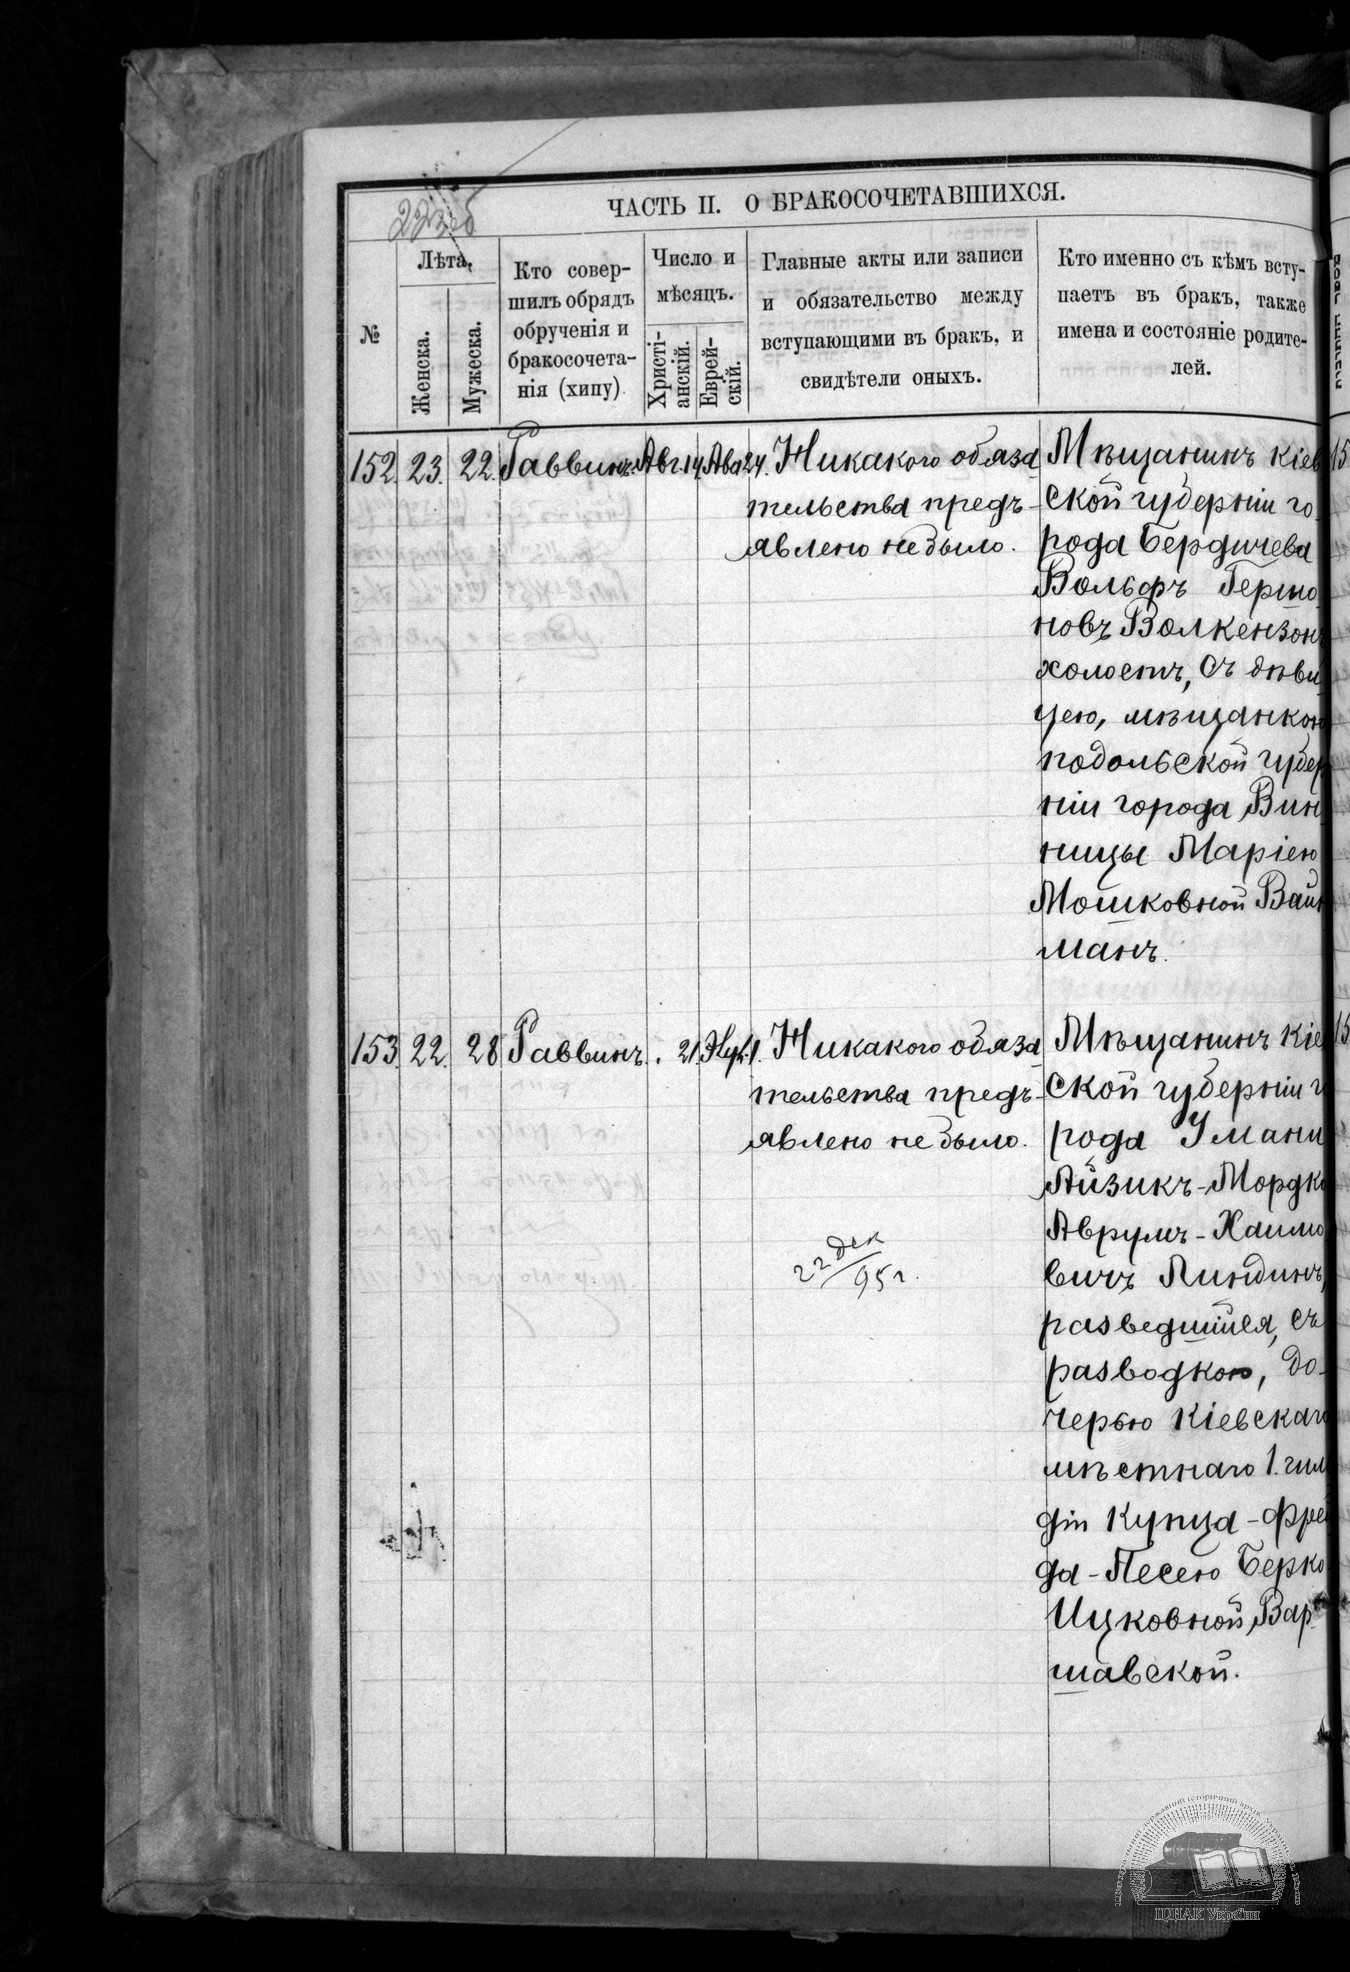 ЧАСТЬ II. О БРАКОСОЧЕТАВШИХСЯ.
№
Лѣта.
Женска.
Мужеска.
Кто совер-
шилъ обрядъ
обрученія и
бракосочета-
нія (хипу)
Число и
мѣсяцъ.
Христі-
анскій.
Еврей-
скій.
Главные акты или записи
и обязательство между
вступающими въ бракъ, и
свидѣтели оныхъ.
Кто именно съ кѣмъ всту-
паетъ въ бракъ, также
имена и состояніе родите-
лей.
152. 23. 22. Раввинъ. Авг. 14. Ава 24.
Никакого обяза
тельства предъ-
явлено не было.
Мѣщанинъ Кіев
ской губерніи го
рода Бердичева
Вольфъ Гершо
новъ Волкензонъ
холостъ, съ дѣви
цею, мѣщанкою
подольской губер
ніи города Вин
ницы Маріею
Мошковной Вайн
манъ.
153. 22. 28 Раввинъ. 21. 1.
Никакого обяза
тельства предъ-
явлено не было.
22 дек
95 г.
Мѣщанинъ Кіе
ской губерніи г
рода Умани
Айзикъ-Мордко
Аврумъ-Хаимо
вичъ Линдинъ,
разведшійся, съ
разводкою, до-
черью Кіевскаго
мѣстнаго 1. гил
діи Купца-Фрей
да-Песею Берко
Ицковной Вар-
шавской.
ЦДІАК України